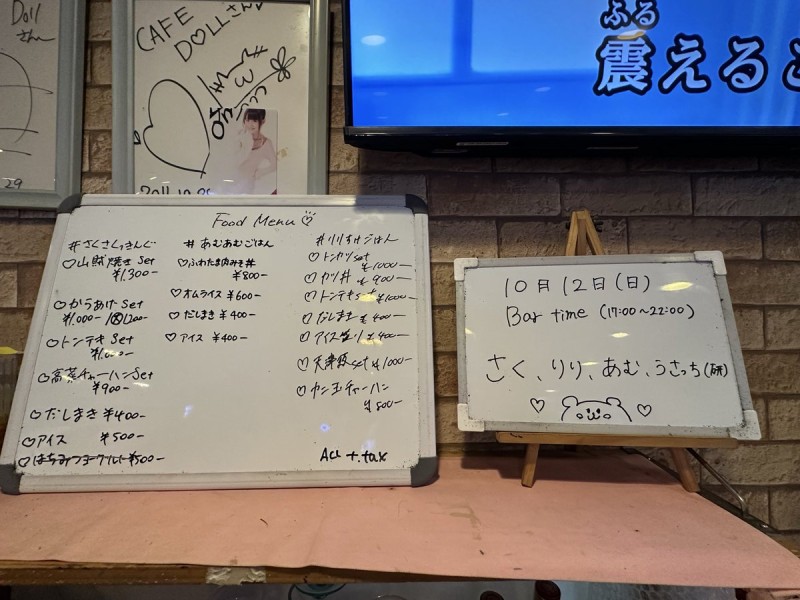 Doll
さん
29
CAFE
DOLLさん
2011.10.
ふる
震えるこ
Food Menu
#さくさくっきんぐ
♡山賊焼き Set
¥1,300-
♡からあげ Set
¥1,000-
♡トンテキ Set
¥1,000-
♡高菜チャーハン Set
¥900-
♡だしまき ¥400-
♡アイス ¥500-
♡はちみつヨーグルト ¥500-
#あむあむごはん
♡ふわたま肉みそ丼
¥800-
♡オムライス ¥600-
♡だしまき ¥400-
♡アイス ¥400-
#りりすけごはん
♡トンカツset
¥1000-
♡カツ丼 ¥900-
♡トンテキset ¥1000-
♡だしまき ¥400-
♡アイス盛り ¥400-
♡天津飯set ¥1000-
♡カニ玉チャーハン
¥800-
All + tax
10月12日(日)
Bar time (17:00~22:00)
さく、りり、あむ、うさっち(研)